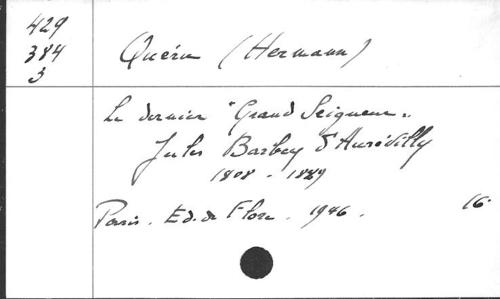 429
384
3
Quéru (Hermann)
Le dernier "Grand Seigneur"
Jules Barbey d'Aurévilly
1808 - 1889
Paris. Ed. de Flore. 1946. 16°